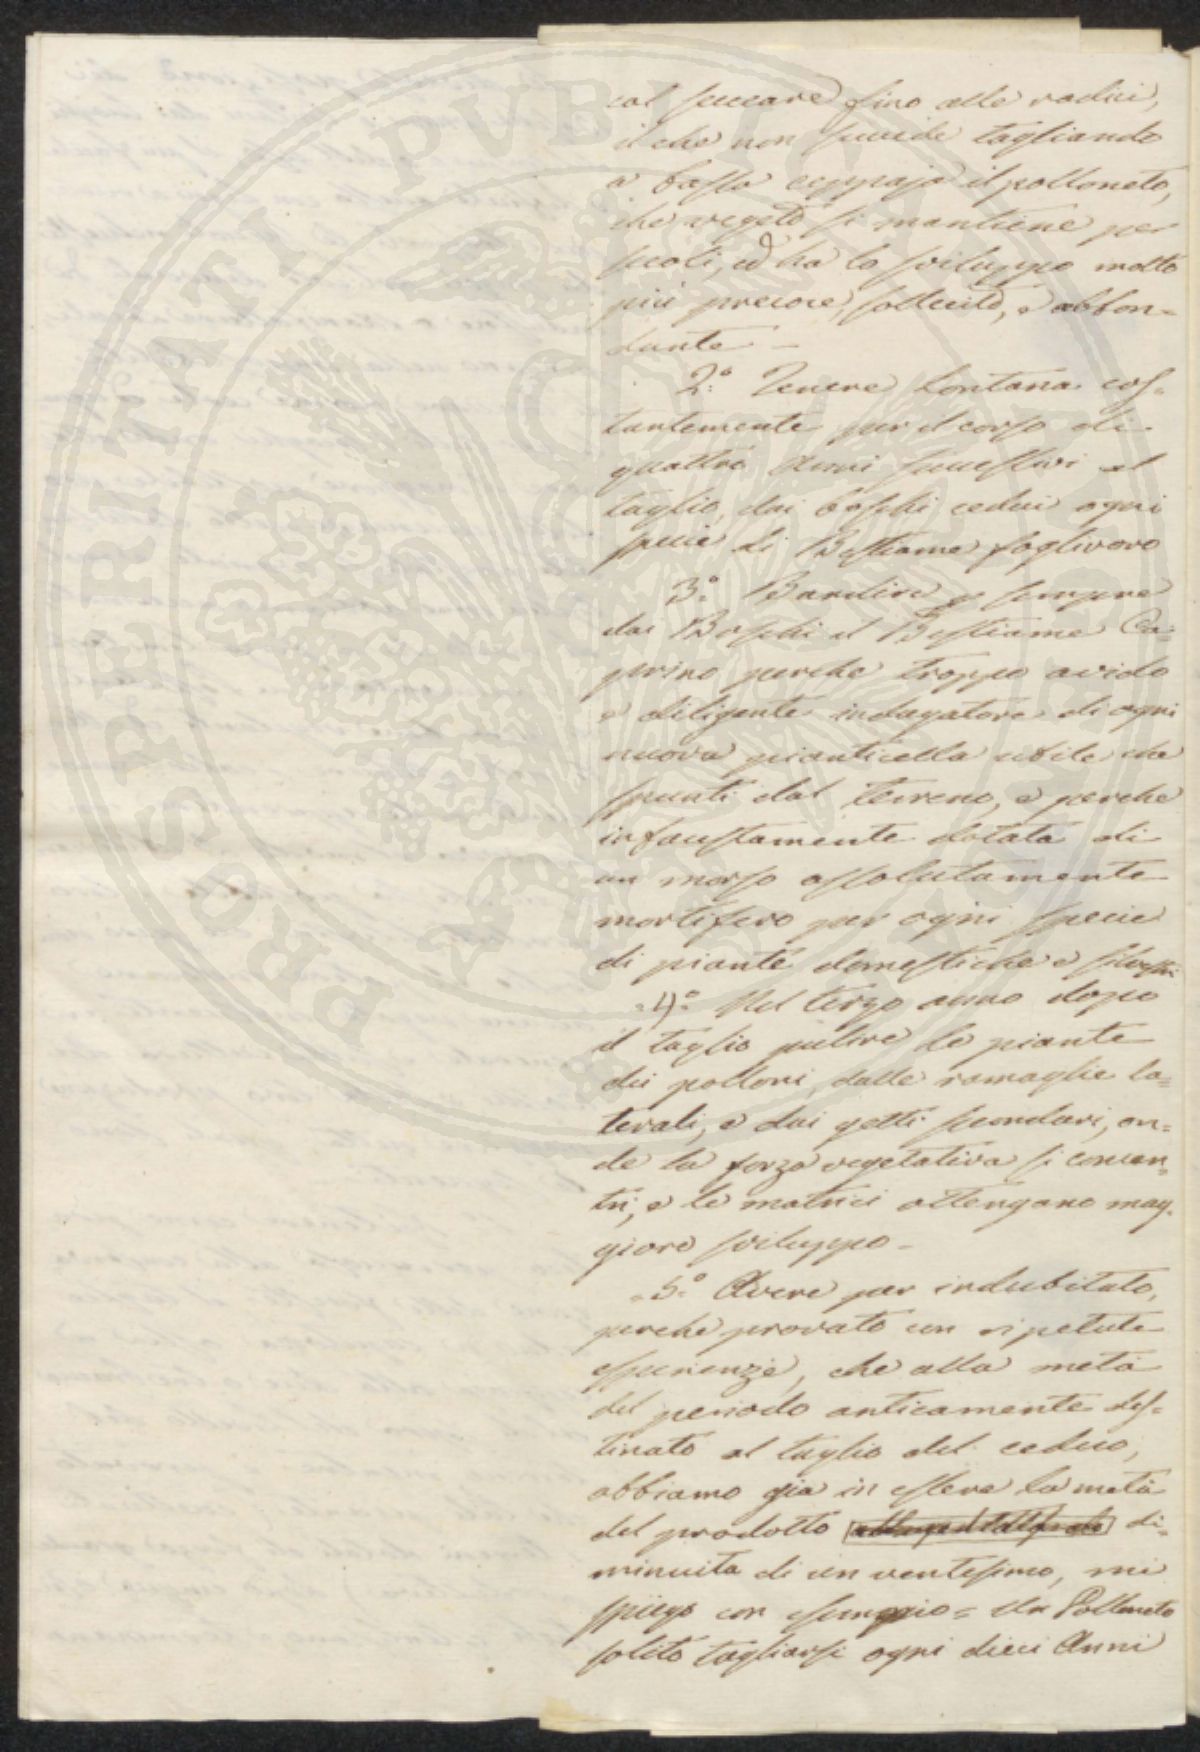 col seccare fino alle radici,
il che non succede tagliando
a bassa ceppaja il polloneto,
che vegeto si mantiene per
secoli, ed ha lo sviluppo molto
più precoce, sollecito, e abbon=
dante -
2.° Tenere lontana cos=
tantemente per il corso di
quattro Anni successivi al
taglio, dai boschi cedui ogni
specie di Bestiame foglivoro
3.° Bandire p sempre
dai Boschi il Bestiame Ca=
prino perche troppo avido
e diligente indagatore di ogni
nuova pianticella utile che
spunti dal terreno, e perche
infaustamente dotata di
un morso assolutamente
mortifero per ogni specie
di piante domestiche e silvestri
4.° Nel terzo anno dopo
il taglio pulire le piante
dei polloni, dalle ramaglie la=
terali, e dai getti secondari, on=
de la forza vegetativa si concen=
tri, e le matrici ottengano mag=
giore sviluppo -
5.° Avere per indubitato,
perche provato con ripetute
esperienze, che alla metà
del periodo anticamente des=
tinato al taglio del ceduo,
abbiamo gia in essere la metà
del prodotto di=
minuita di un ventesimo, mi
spiego con esempio = Un Polloneto
solito tagliarsi ogni dieci Anni
PROSPERITATI PUBLICAE